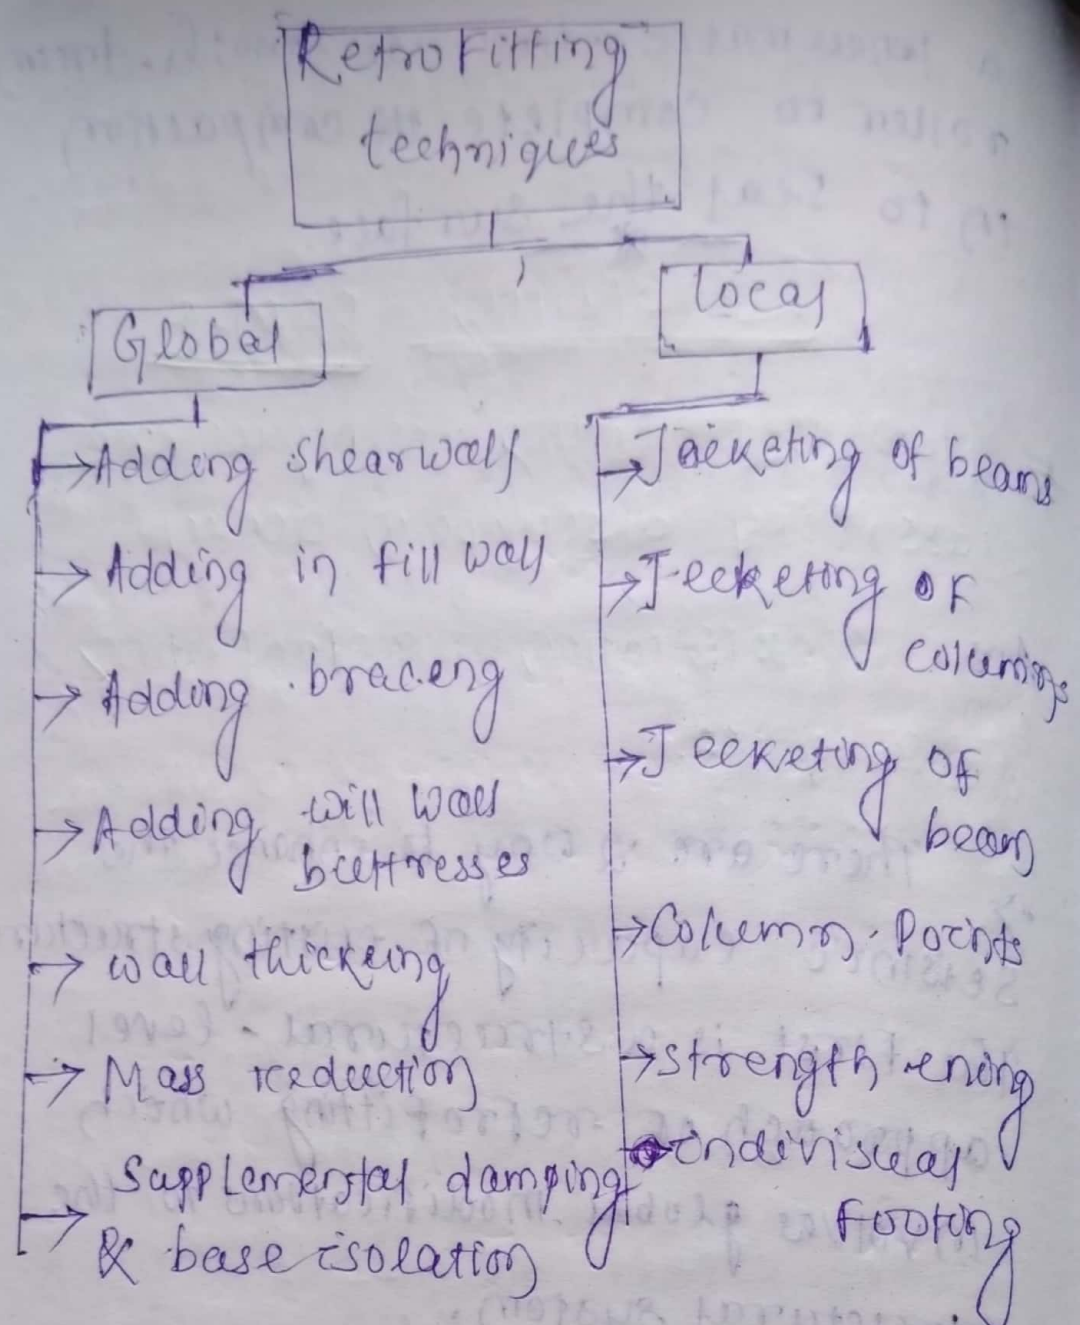 Retrofitting
techniques
Global
local
Adding shearwall
Adding in fill wall
Adding braceng
Adding will wall
buttresses
wall thickeing
Mass reduction
Supplemental damping
& base isolation
Jacketing of beams
Jecketing of
columns
Jecketing of
beam
Column Points
strength ening
indivisual
footing